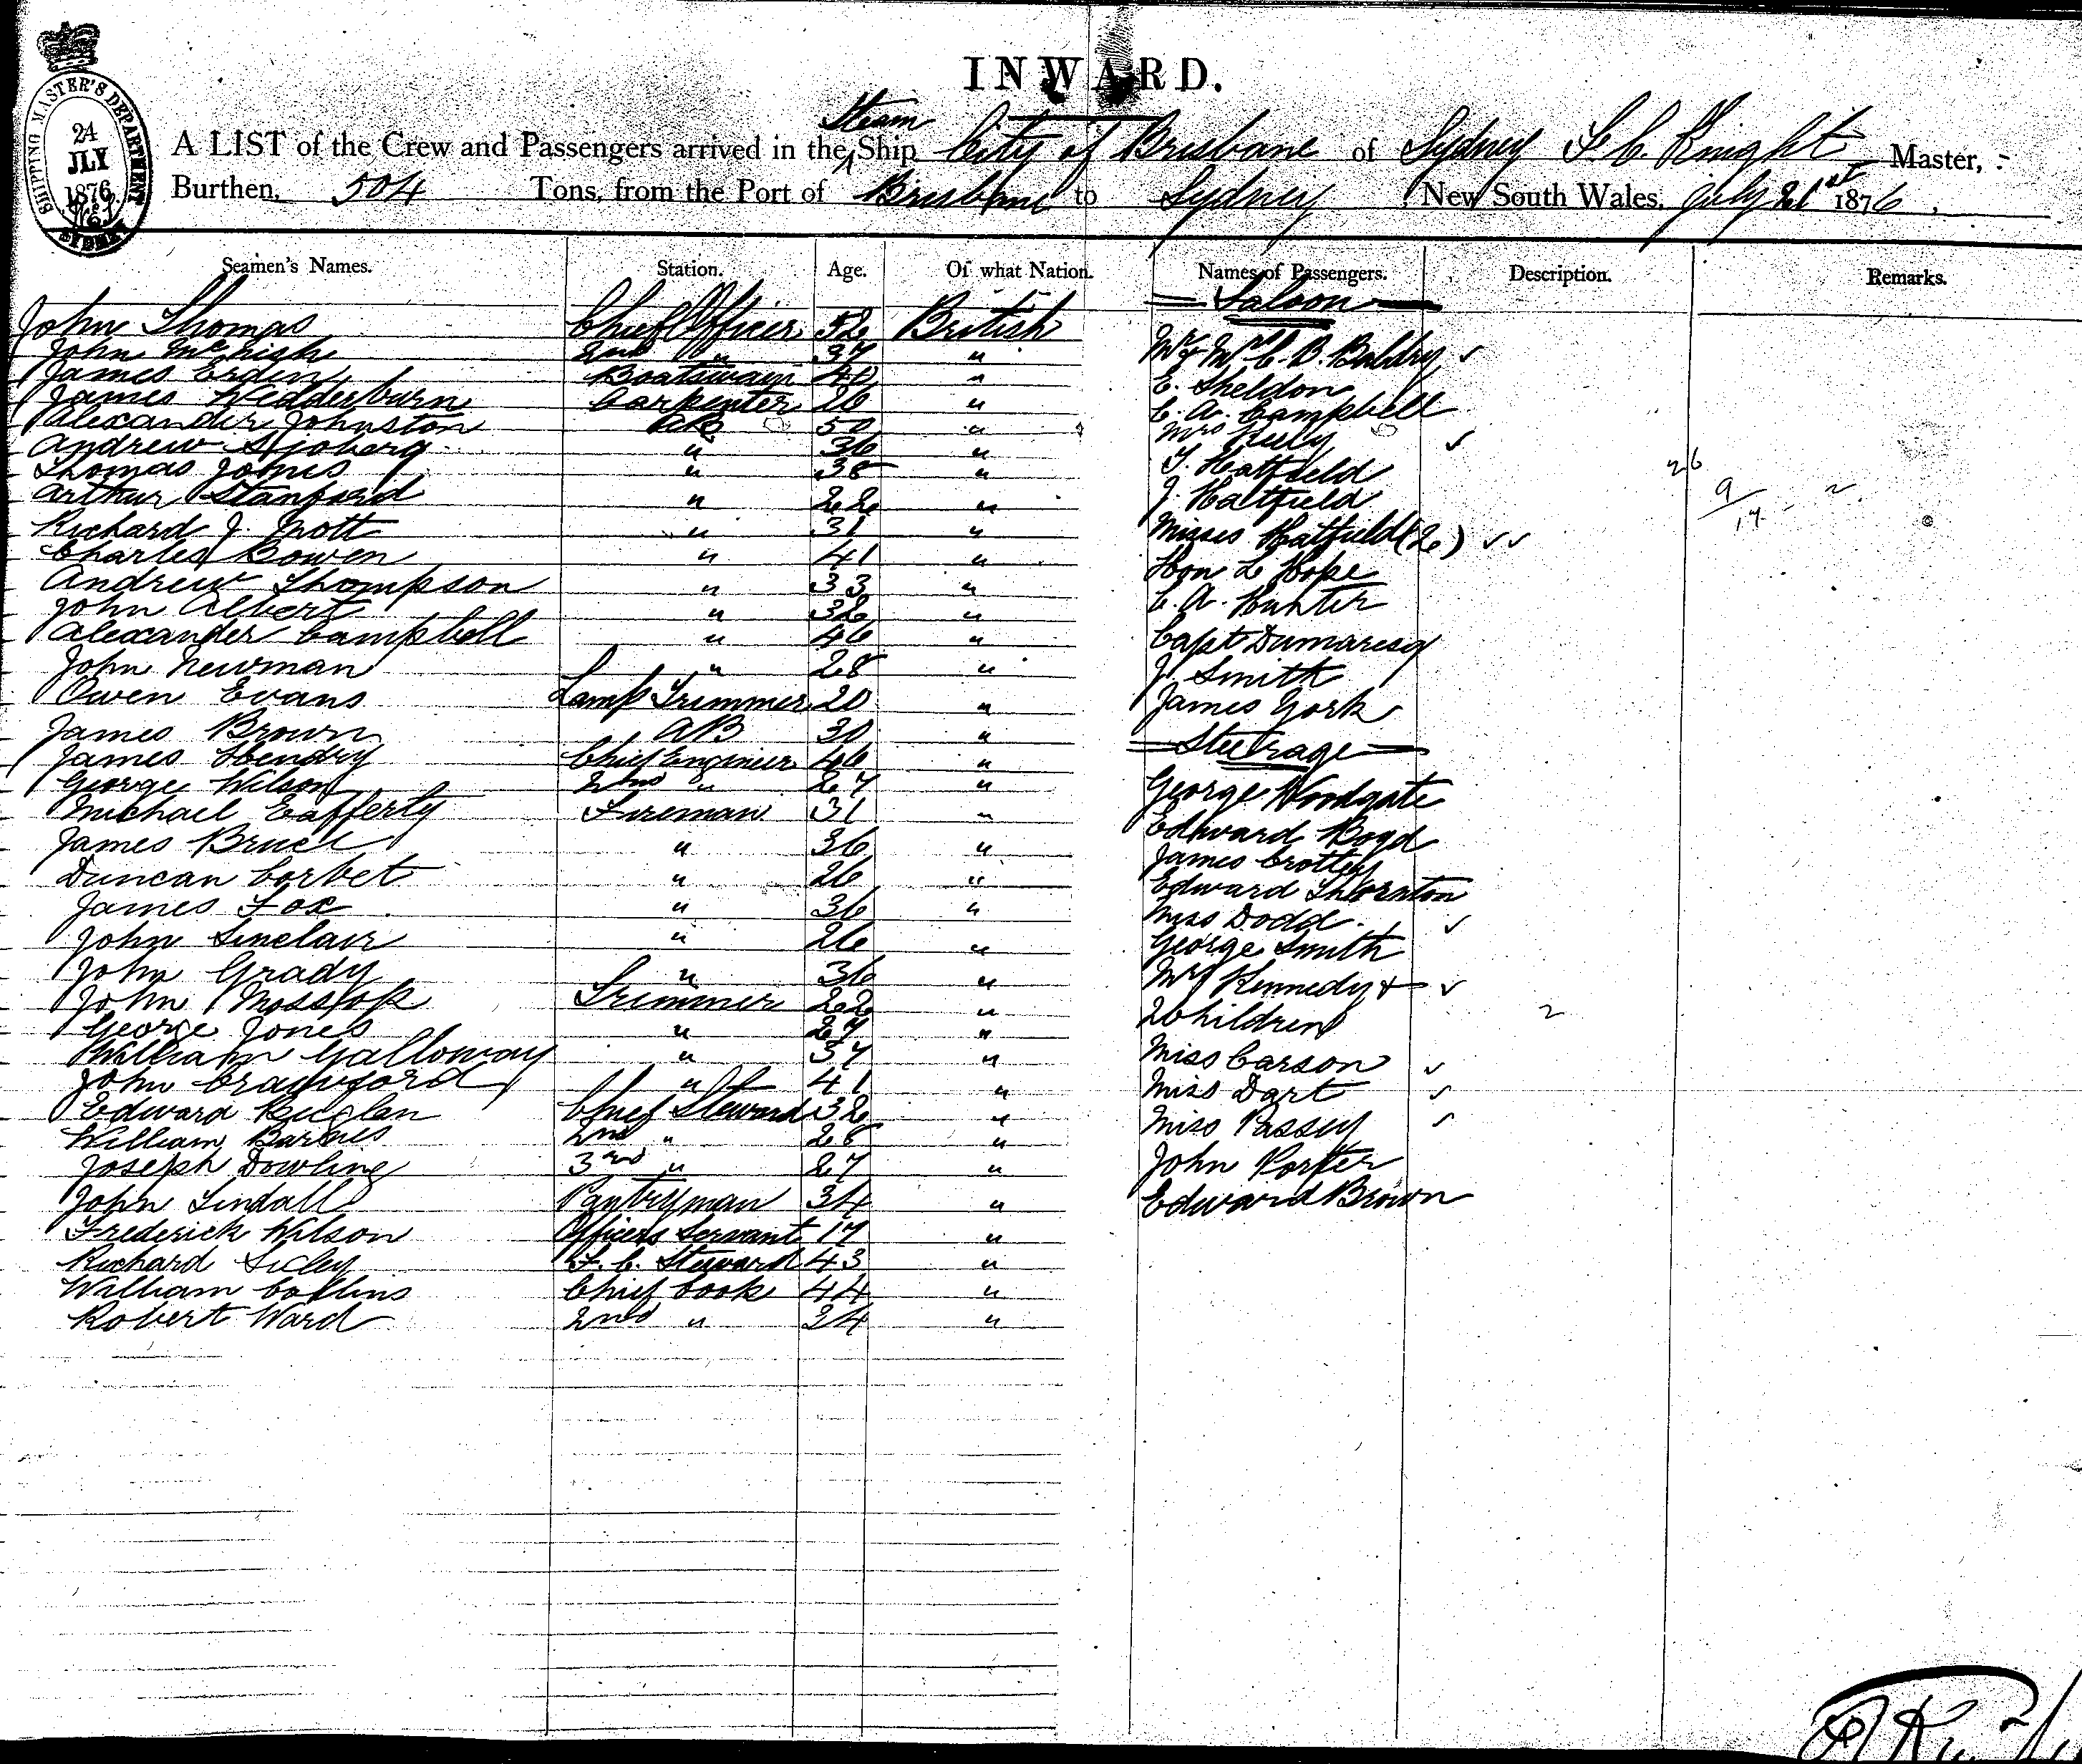 INWARD.
SHIPPING MASTER'S DEPARTMENT
24
JLY
1876
SYDNEY
Steam
A LIST of the Crew and Passengers arrived in the Ship City of Brisbane of Sydney F. C. Knight Master,
Burthen, 504 Tons, from the Port of Brisbane to Sydney New South Wales, July 21st 1876
Seamen's Names. Station. Age. Of what Nation. Names of Passengers. Description. Remarks.
Saloon
John Thomas Chief Officer 52 British
John 2nd " 37 " Mr & Mrs C. B. ✓
James Boatswain 40 " E. Sheldon
James Wedderburn Carpenter 26 " C. A. Campbell
Alexander Johnston AB 50 " Mrs ✓
Andrew Sjoberg " 36 " T. Hatfield
Thomas Jones " 38 " J. Hatfield
26
9
17
Arthur Stanford " 22 " Misses Hatfield (2) ✓✓
Richard J. Mott " 31 " Hon L Hope
Charles Bowen " 41 " C. A. Hunter
Andrew Thompson " 33 "
John Albert " 32 " Capt Dumaresq
Alexander Campbell " 46 " J. Smith
John Newman " 28 " James York
Owen Evans Lamp Trimmer 20 "
James Brown AB 30 " Steerage
James Hendry Chief Engineer 46 " George Woodgate
George Wilson 2nd " 27 " Edward Boyd
Michael Cafferty Fireman 31 " James Crottey
James Bruce " 36 " Edward Thornton
Duncan Corbet " 26 " Miss Dodd ✓
James Fox " 36 " George Smith
John Sinclair " 26 "
John Grady " 36 " Mrs Kennedy & ✓
John Mossop Trimmer 22 " 2 Children 2
George Jones " 27 "
William Galloway " 37 " Miss Carson ✓
John Crawford " 41 " Miss Dart ✓
Edward Chief Steward 32 " Miss Passey ✓
William Barnes 2nd " 28 " John Porter
Joseph Dowling 3rd " 27 " Edward Brown
John Tindall Pantryman 34 "
Frederick Wilson Officers Servant 17 "
Richard F. C. Steward 43 "
William Collins Chief Cook 44 "
Robert Ward 2nd " 24 "